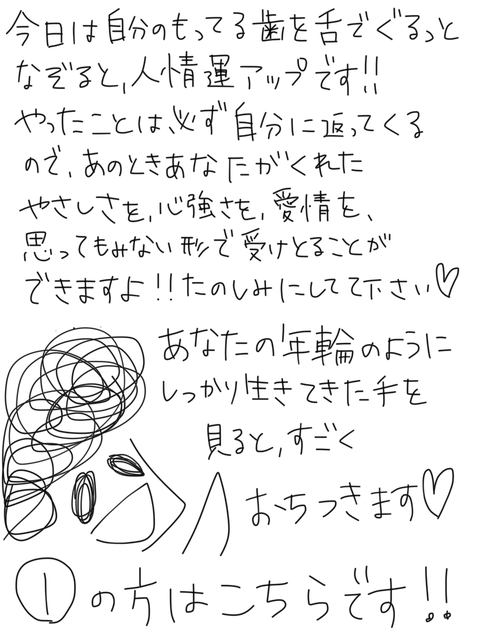 今日は自分のもってる歯を舌でぐるっと
なぞると、人情運アップです!!
やったことは、必ず自分に返ってくる
ので、あのときあなたがくれた
やさしさを、心強さを、愛情を、
思ってもみない形で受けとることが
できますよ!!たのしみにしてて下さい♡
あなたの年輪のように
しっかり生きてきた手を
見ると、すごく
おちつきます♡
①の方はこちらです!!